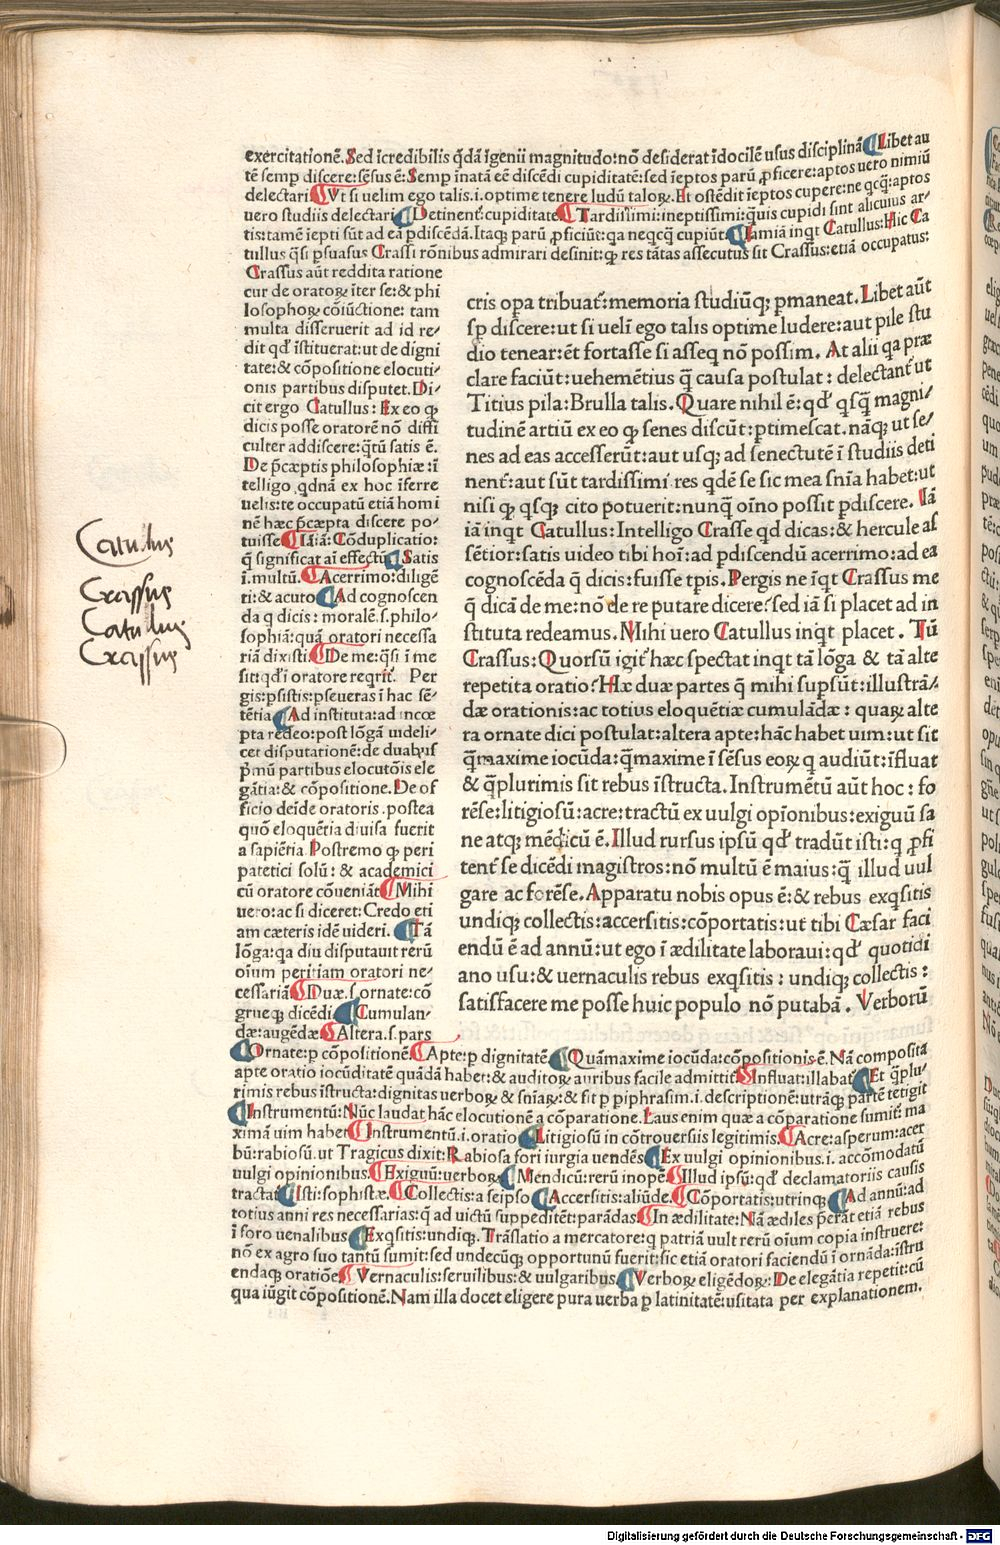 exercitationē. Sed īcredibilis q̄dā īgenii magnitudo: nō desiderat īdocilē usus disciplinā ¶ Libet au
tē semp discere: sēsus ē: Semp īnatā eē discēdi cupiditatē: sed īeptos parū ꝓficere: aptos uero nimiū
delectari ¶ Vt si uelim ego talis .i. optime tenere ludū taloꝝ. Et ostēdit īeptos cupere: ne qcq̄: aptos
uero studiis delectari ¶ Detinent᷑: cupiditate ¶ Tardissimi: ineptissimi: quis cupidi sint alicuius ar⸗
tis: tamē īepti sūt ad eā ꝑdiscēdā. Itaqꝫ parū ꝓficiūt: qa neqcq̄ cupiūt ¶ Iamiā inqt Catullus: Hic Ca
tullus qsi ꝑsuasus Crassi rōnibus admirari desinit: ꝙ res tātas assecutus sit Crassus: etiā occupatus:
Crassus aūt reddita ratione
cur de oratoꝝ īter se: & phi
losophoꝝ cōiūctione: tam
multa disseruerit ad id re⸗
dit qđ īstituerat: ut de digni
tate: & cōpositione elocuti⸗
onis partibus disputet. Di⸗
cit ergo Catullus: Ex eo ꝙ
dicis posse oratorē nō diffi
culter addiscere: qrtū satis ē.
De p̄cæptis philosophiæ: ī
telligo qdnā ex hoc īferre
uelis: te occupatū etiā homi
nē hæc p̄cæpta discere po⸗
tuisse ¶ Iā iā: Cōduplicatio:
q̄ significat aī effectū ¶ Satis
.i. multū. ¶ Acerrimo: diligē
ti: & acuto ¶ Ad cognoscen
da q dicis: moralē .s. philo⸗
sophiā: quā oratori necessa
riā dixisti ¶ De me: qsi ī me
sit: qđ ī oratore reqrit᷑. Per
gis: ꝑsistis: ꝑseueras ī hac sē⸗
tētia ¶ Ad instituta: ad incœ
pta redeo: post lōgā uideli⸗
cet disputationē: de duabus
p̄mū partibus elocutōis ele
gātia: & cōpositione. De of
ficio deīde oratoris. postea
quō eloquētia diuisa fuerit
a sapiētia. Postremo ꝙ peri
patetici solū: & academici
cū oratore cōueniāt ¶ Mihi
uero: ac si diceret: Credo eti
am cæteris idē uideri. ¶ Tā
lōga: qa diu disputauit rerū
oīum peritiam oratori ne⸗
cessariā ¶ Duæ .s. ornate: cō
grueqꝫ dicēdi ¶ Cumulan⸗
dæ: augēdæ ¶ Altera .s. pars
cris opa tribuat᷑: memoria studiūqꝫ ꝑmaneat. Libet aūt
sp discere: ut si uelī ego talis optime ludere: aut pile stu
dio tenear: ēt fortasse si asseq nō possim. At alii qa præ
clare faciūt: uehemētius q̄ causa postulat: delectant᷑ ut
Titius pila: Brulla talis. Quare nihil ē: qđ qsq̄ magni⸗
tudinē artiū ex eo ꝙ senes discūt: ꝑtimescat. nāqꝫ ut se⸗
nes ad eas accesserūt: aut usqꝫ ad senectutē ī studiis deti
nent᷑: aut sūt tardissimi. res qdē se sic mea snīa habet: ut
nisi ꝙ qsqꝫ cito potuerit: nunq̄ oīno possit ꝑdiscere. Iā
iā inqt Catullus: Intelligo Crasse qd dicas: & hercule as
sētior: satis uideo tibi hoī: ad ꝑdiscendū acerrimo: ad ea
cognoscēda q̄ dicis: fuisse tpis. Pergis ne īqt Crassus me
q̄ dicā de me: nō de re putare dicere? sed iā si placet ad in
stituta redeamus. Mihi uero Catullus inqt placet. Tū
Crassus: Quorsū igit᷑ hæc spectat inqt tā lōga & tā alte
repetita oratio? Hæ duæ partes q̄ mihi supsūt: illustrā⸗
dæ orationis: ac totius eloquētiæ cumulādæ: quaꝝ alte
ra ornate dici postulat: altera apte: hāc habet uim: ut sit
q̄maxime iocūda: q̄maxime ī sēsus eoꝝ q audiūt: īfluat
& q̄plurimis sit rebus īstructa. Instrumētū aūt hoc: fo
rēse: litigiosū: acre: tractū ex uulgi opīonibus: exiguū sa
ne atqꝫ mēdicū ē. Illud rursus ipsū qđ tradūt isti: q ꝓfi
tent᷑ se dicēdi magistros: nō multū ē maius: q̄ illud uul
gare ac forēse. Apparatu nobis opus ē: & rebus exqsitis
undiqꝫ collectis: accersitis: cōportatis: ut tibi Cæsar faci
endū ē ad annū: ut ego ī ædilitate laboraui: qđ quotidi
ano usu: & uernaculis rebus exqsitis: undiqꝫ collectis:
satisfacere me posse huic populo nō putabā. Verborū
¶ Ornate: ꝑ cōpositionē ¶ Apte: ꝑ dignitatē ¶ Quāmaxime iocūda: cōpositionis ē. Nā composita
apte oratio iocūditatē quādā habet: & auditoꝝ auribus facile admittit᷑ ¶ Influat: illabat᷑ ¶ Et q̄plu⸗
rimis rebus īstructa: dignitas uerboꝝ & sniaꝝ: & sit ꝑ piphrasim .i. descriptionē: utrāqꝫ partē tetigit
¶ Instrumentū: Nūc laudat hāc elocutionē a cōparatione. Laus enim quæ a cōparatione sumit᷑: ma
ximā uim habet ¶ Instrumentū .i. oratio ¶ Litigiosū in cōtrouersiis legitimis. ¶ Acre: asperum: acer
bū: rabiosū. ut Tragicus dixit: Rabiosa fori iurgia uendēs ¶ Ex uulgi opinionibus .i. accōmodatū
uulgi opinionibus. ¶ Exiguū: uerboꝝ ¶ Mendicū: rerū inopē ¶ Illud ipsū: qđ declamatoriis causis
tractat᷑ ¶ Isti: sophistæ. ¶ Collectis: a seipso ¶ Accersitis: aliūde. ¶ Cōportatis: utrinqꝫ ¶ Ad annū: ad
totius anni res necessarias: q̄ ad uictū suppeditēt: parādas ¶ In ædilitate: Nā ædiles p̄erāt etiā rebus
ī foro uenalibus ¶ Exqsitis: undiqꝫ. Trāslatio a mercatore: q patriā uult rerū oīum copia instruere:
nō ex agro suo tantū sumit: sed undecūqꝫ opportunū fuerit: sic etiā oratori faciendū ī ornāda: īstru
endaqꝫ oratiōe ¶ Vernaculis: seruilibus: & uulgaribus ¶ Verboꝝ eligēdoꝝ: De elegātia repetit: cū
qua iūgit cōpositionē. Nam illa docet eligere pura uerba ꝑ latinitatē: usitata per explanationem.
Catullus
Crassus
Catullus
Crassus
Digitalisierung gefördert durch die Deutsche Forschungsgemeinschaft - DFG